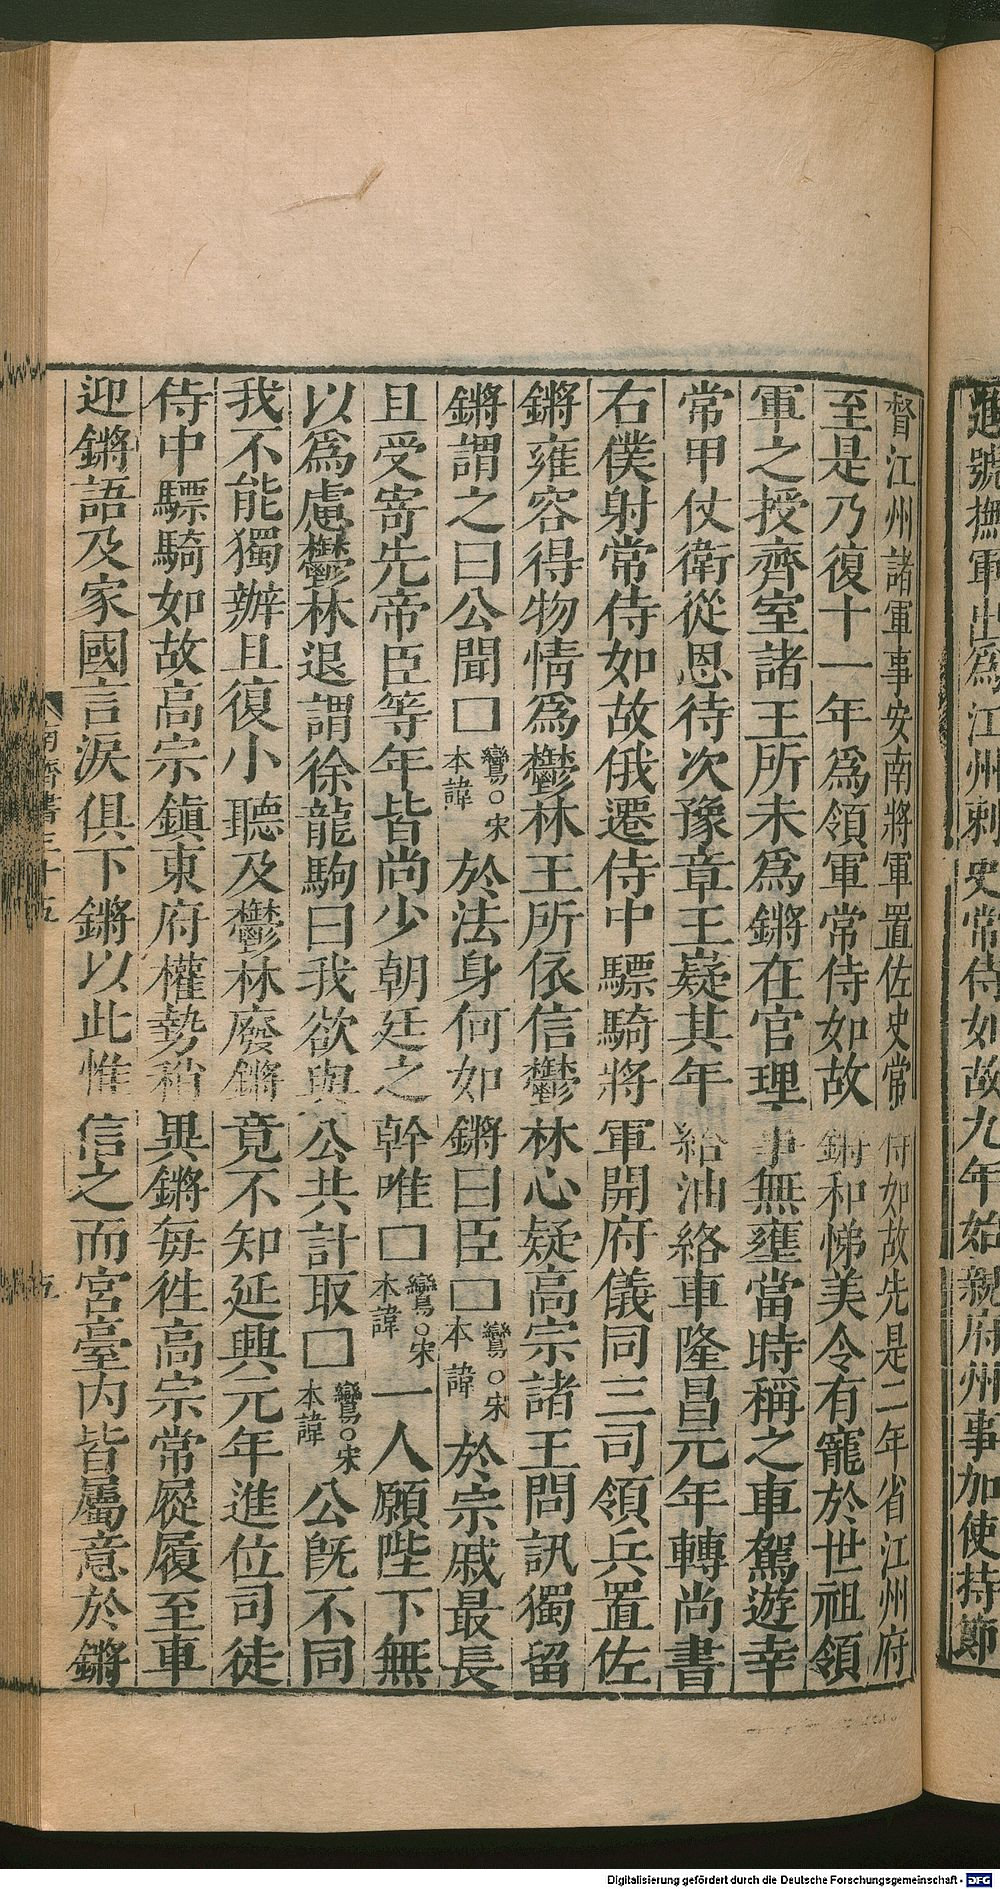 進號撫軍出爲江州刺史常侍如故九年始親府州事加使持節
督江州諸軍事安南將軍置佐史常侍如故先是二年省江州府
至是乃復十一年爲領軍常侍如故鏘和悌美令有寵於世祖領
軍之授齊室諸王所未爲鏘在官理事無壅當時稱之車駕遊幸
常甲仗衛從恩待次豫章王嶷其年給油絡車隆昌元年轉尚書
右僕射常侍如故俄遷侍中驃騎將軍開府儀同三司領兵置佐
鏘雍容得物情爲鬱林王所依信鬱林心疑高宗諸王問訊獨留
鏘謂之曰公聞□鸞○宋本諱於法身何如鏘曰臣□鸞○宋本諱於宗戚最長
且受寄先帝臣等年皆尚少朝廷之幹唯□鸞○宋本諱一人願陛下無
以爲慮鬱林退謂徐龍駒曰我欲與公共計取□鸞○宋本諱公既不同
我不能獨辦且復小聽及鬱林廢鏘竟不知延興元年進位司徒
侍中驃騎如故高宗鎮東府權勢稍異鏘每徃高宗常屣履至車
迎鏘語及家國言淚俱下鏘以此惟信之而宮臺內皆屬意於鏘
南齊書三十五
五
Digitalisierung gefördert durch die Deutsche Forschungsgemeinschaft - DFG